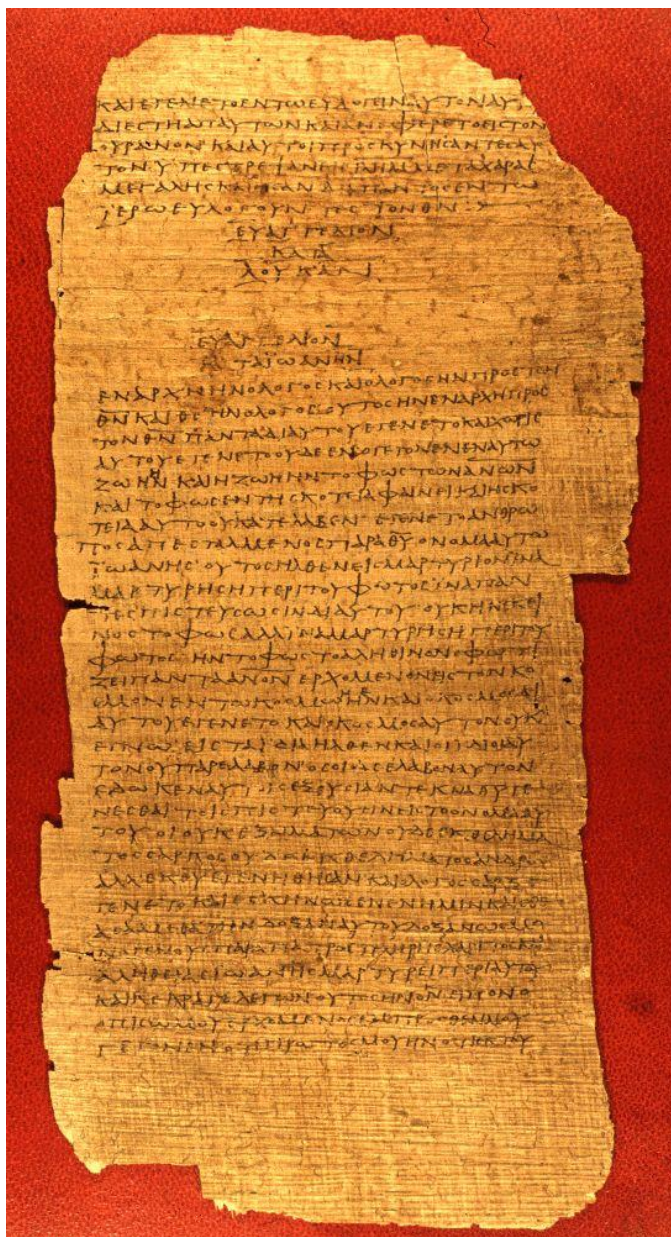 ΚΑΙΕΓΕΝΕΤΟΕΝΤΩΕΥΛΟΓΕΙΝΑΥΤΟΝΑΥ
ΔΙΕΣΤΗΑΠΑΥΤΩΝΚΑΙΑΝΕΦΕΡΕΤΟΕΙΣΤΟΝ
ΟΥΡΑΝΟΝΚΑΙΑΥΤΟΙΠΡΟΣΚΥΝΗΣΑΝΤΕΣΑΥ
ΤΟΝΥΠΕΣΤΡΕΨΑΝΕΙΣ ΜΕΤΑΧΑΡΑΣ
ΜΕΓΑΛΗΣΚΑΙΗΣΑΝΔΙΑΠΑΝΤΟΣΕΝΤΩ
ΙΕΡΩΕΥΛΟΓΟΥΝΤΕΣΤΟΝΘΝ
ΕΥΑΓΓΕΛΙΟΝ
ΚΑΤΑ
ΛΟΥΚΑΝ
ΕΥΑΓΓΕΛΙΟΝ
ΚΑΤΑΪΩΑΝΗΝ
ΕΝΑΡΧΗΗΝΟΛΟΓΟΣΚΑΙΟΛΟΓΟΣΗΝΠΡΟΣΤΟΝ
ΘΝΚΑΙΘΣΗΝΟΛΟΓΟΣΟΥΤΟΣΗΝΕΝΑΡΧΗΠΡΟΣ
ΤΟΝΘΝΠΑΝΤΑΔΙΑΥΤΟΥΕΓΕΝΕΤΟΚΑΙΧΩΡΙΣ
ΑΥΤΟΥΕΓΕΝΕΤΟΟΥΔΕΕΝΟΓΕΓΟΝΕΝΕΝΑΥΤΩ
ΖΩΗΝΚΑΙΗΖΩΗΗΝΤΟΦΩΣΤΩΝΑΝΩΝ
ΚΑΙΤΟΦΩΣΕΝΤΗΣΚΟΤΕΙΑΦΑΙΝΕΙΚΑΙΗΣΚΟ
ΤΕΙΑΑΥΤΟΟΥΚΑΤΕΛΑΒΕΝΕΓΕΝΕΤΟΑΝΘΡΩ
ΠΟΣΑΠΕΣΤΑΛΜΕΝΟΣΠΑΡΑΘΥΟΝΟΜΑΑΥΤΩ
ΪΩΑΝΗΣΟΥΤΟΣΗΛΘΕΝΕΙΣΜΑΡΤΥΡΙΟΝΙΝΑ
ΜΑΡΤΥΡΗΣΗΠΕΡΙΤΟΥΦΩΤΟΣΙΝΑΠΑΝ
ΤΕΣΠΙΣΤΕΥΣΩΣΙΝΔΙΑΥΤΟΥΟΥΚΗΝΕΚΕΙ
ΝΟΣΤΟΦΩΣΑΛΛΙΝΑΜΑΡΤΥΡΗΣΗΠΕΡΙΤΟΥ
ΦΩΤΟΣΗΝΤΟΦΩΣΤΟΑΛΗΘΙΝΟΝΟΦΩΤΙ
ΖΕΙΠΑΝΤΑΑΝΟΝΕΡΧΟΜΕΝΟΝΕΙΣΤΟΝΚΟ
ΣΜΟΝΕΝΤΩΚΟΣΜΩΗΝΚΑΙΟΚΟΣΜΟΣΔΙ
ΑΥΤΟΥΕΓΕΝΕΤΟΚΑΙΟΚΟΣΜΟΣΑΥΤΟΝΟΥΚ
ΕΓΝΩΕΙΣΤΑΙΔΙΑΗΛΘΕΝΚΑΙΟΙΙΔΙΟΙΑΥ
ΤΟΝΟΥΠΑΡΕΛΑΒΟΝΟΣΟΙΔΕΕΛΑΒΟΝΑΥΤΟΝ
ΕΔΩΚΕΝΑΥΤΟΙΣΕΞΟΥΣΙΑΝΤΕΚΝΑΘΥΓΕ
ΝΕΣΘΑΙΤΟΙΣΠΙΣΤΕΥΟΥΣΙΝΕΙΣΤΟΟΝΟΜΑΑΥ
ΤΟΥΟΙΟΥΚΕΞΑΙΜΑΤΩΝΟΥΔΕΕΚΘΕΛΗΜΑ
ΤΟΣΣΑΡΚΟΣΟΥΔΕΕΚΘΕΛΗΜΑΤΟΣΑΝΔΡΟΣ
ΑΛΛΕΚΘΥΕΓΕΝΗΘΗΣΑΝΚΑΙΟΛΟΓΟΣΣΑΡΞΕ
ΓΕΝΕΤΟΚΑΙΕΣΚΗΝΩΣΕΝΕΝΗΜΙΝΚΑΙΕΘΕ
ΑΣΑΜΕΘΑΤΗΝΔΟΞΑΝΑΥΤΟΥΔΟΞΑΝΩΣΜΟ
ΝΟΓΕΝΟΥΣΠΑΡΑΠΑΤΡΟΣΠΛΗΡΗΣΧΑΡΙΤΟΣΚΑΙ
ΑΛΗΘΕΙΑΣΙΩΑΝΗΣΜΑΡΤΥΡΕΙΠΕΡΙΑΥΤΟΥ
ΚΑΙΚΕΚΡΑΓΕΛΕΓΩΝΟΥΤΟΣΗΝΟΝΕΙΠΟΝΟ
ΟΠΙΣΩΜΟΥΕΡΧΟΜΕΝΟΣΕΜΠΡΟΣΘΕΝΜΟΥ
ΓΕΓΟΝΕΝΟΤΙΠΡΩΤΟΣΜΟΥΗΝΟΤΙΕΚΤΟΥ